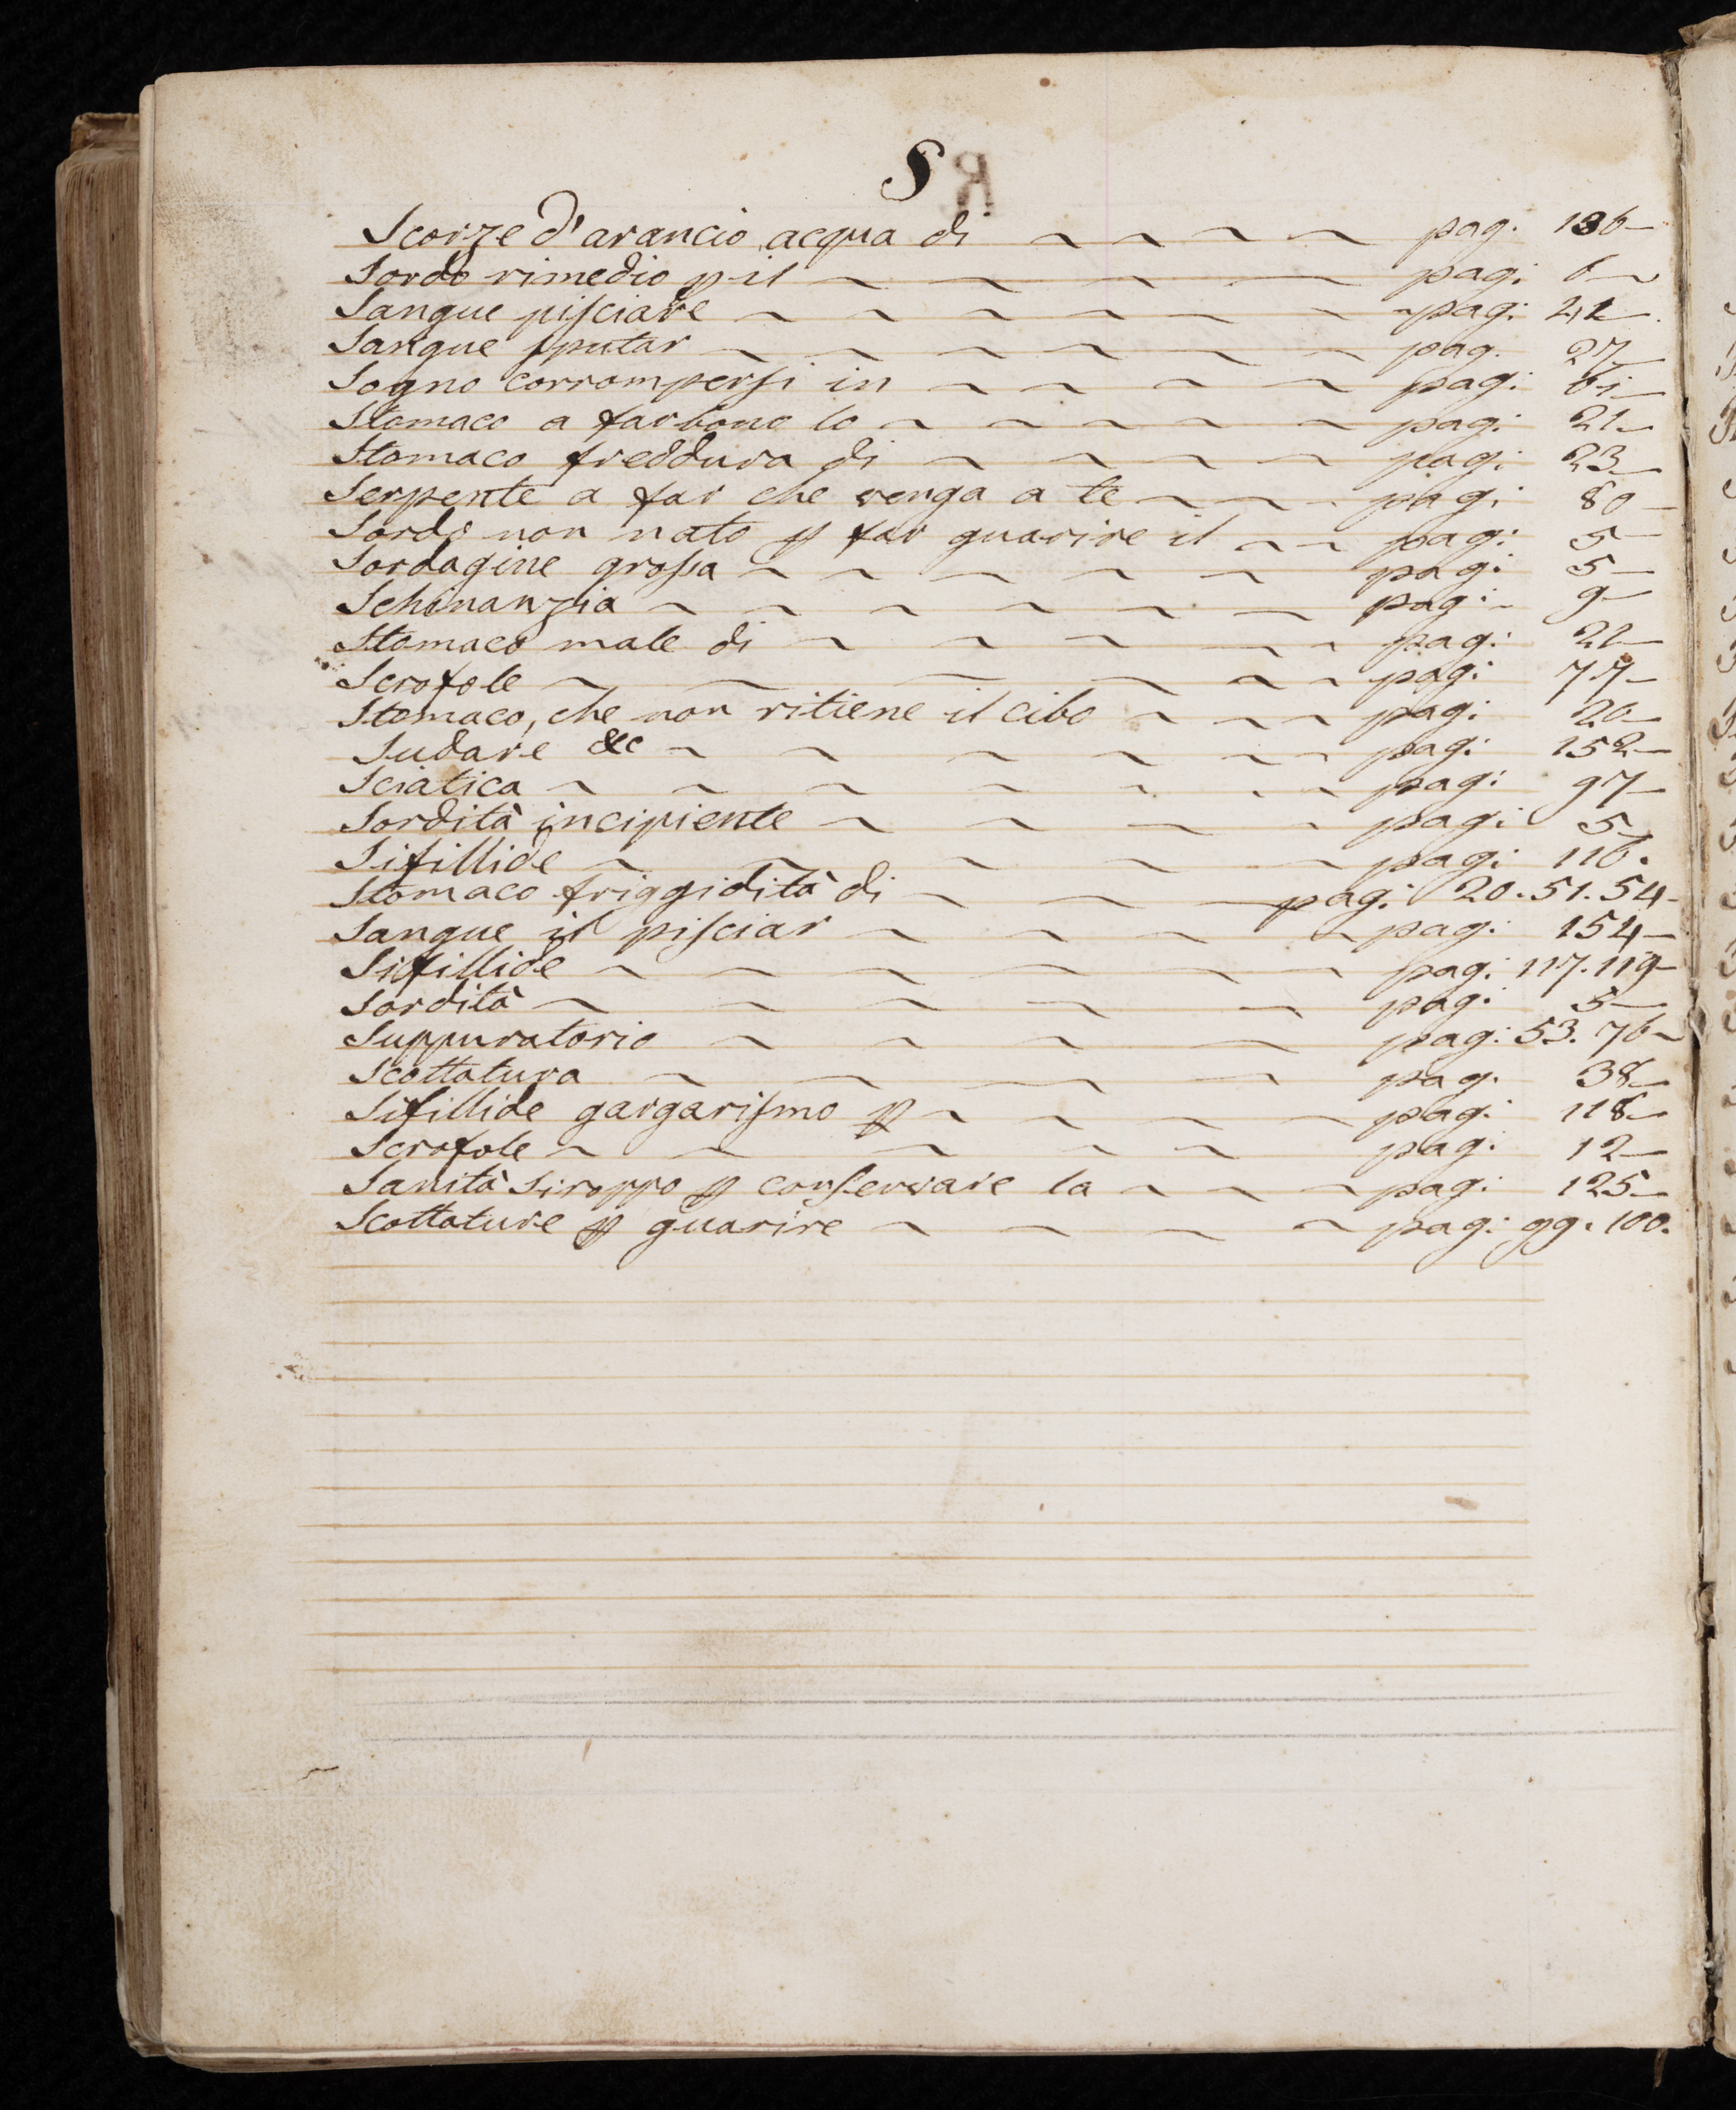 S
Scorze d'arancio, acqua di ~ ~ ~ ~ ~ pag. 136
Sordo rimedio p il ~ ~ ~ ~ ~ pag: 6
Sangue pisciare ~ ~ ~ ~ ~ ~ pag:
Sangue sputar ~ ~ ~ ~ ~ ~ pag. 27
Sogno corrompersi in ~ ~ ~ ~ pag: 61
Stomaco a far bono lo ~ ~ ~ ~ ~ pag: 21
Stomaco freddura di ~ ~ ~ ~ pag: 23
Serpente a far che venga a te ~ ~ ~ pag: 80
Sordo non nato p far guarire il ~ ~ pag: 5
Sordagine grossa ~ ~ ~ ~ ~ pag: 5
Schinanzia ~ ~ ~ ~ ~ ~ pag: 9
Stomaco male di ~ ~ ~ ~ ~ pag: 21
Scrofole ~ ~ ~ ~ ~ ~ pag: 77
Stomaco, che non ritiene il cibo ~ ~ ~ pag: 20
Sudare &c ~ ~ ~ ~ ~ ~ pag: 152
Sciatica ~ ~ ~ ~ ~ ~ ~ pag: 97
Sordità incipiente ~ ~ ~ ~ pag: 5
Sifillide ~ ~ ~ ~ ~ pag: 116.
Stomaco friggidità di ~ ~ ~ pag: 20. 51. 54
Sangue il pisciar ~ ~ ~ ~ pag: 154
Sifillide ~ ~ ~ ~ ~ ~ pag: 117. 119
Sordità ~ ~ ~ ~ ~ pag: 5
Suppuratorio ~ ~ ~ ~ pag: 53. 76
Scottatura ~ ~ ~ ~ pag. 38
Sifillide gargarismo p ~ ~ ~ ~ pag: 118
Scrofole ~ ~ ~ ~ ~ pag: 12
Sanità siroppo p conservare la ~ ~ ~ pag: 125
Scottature p guarire ~ ~ ~ ~ pag: 99. 100.